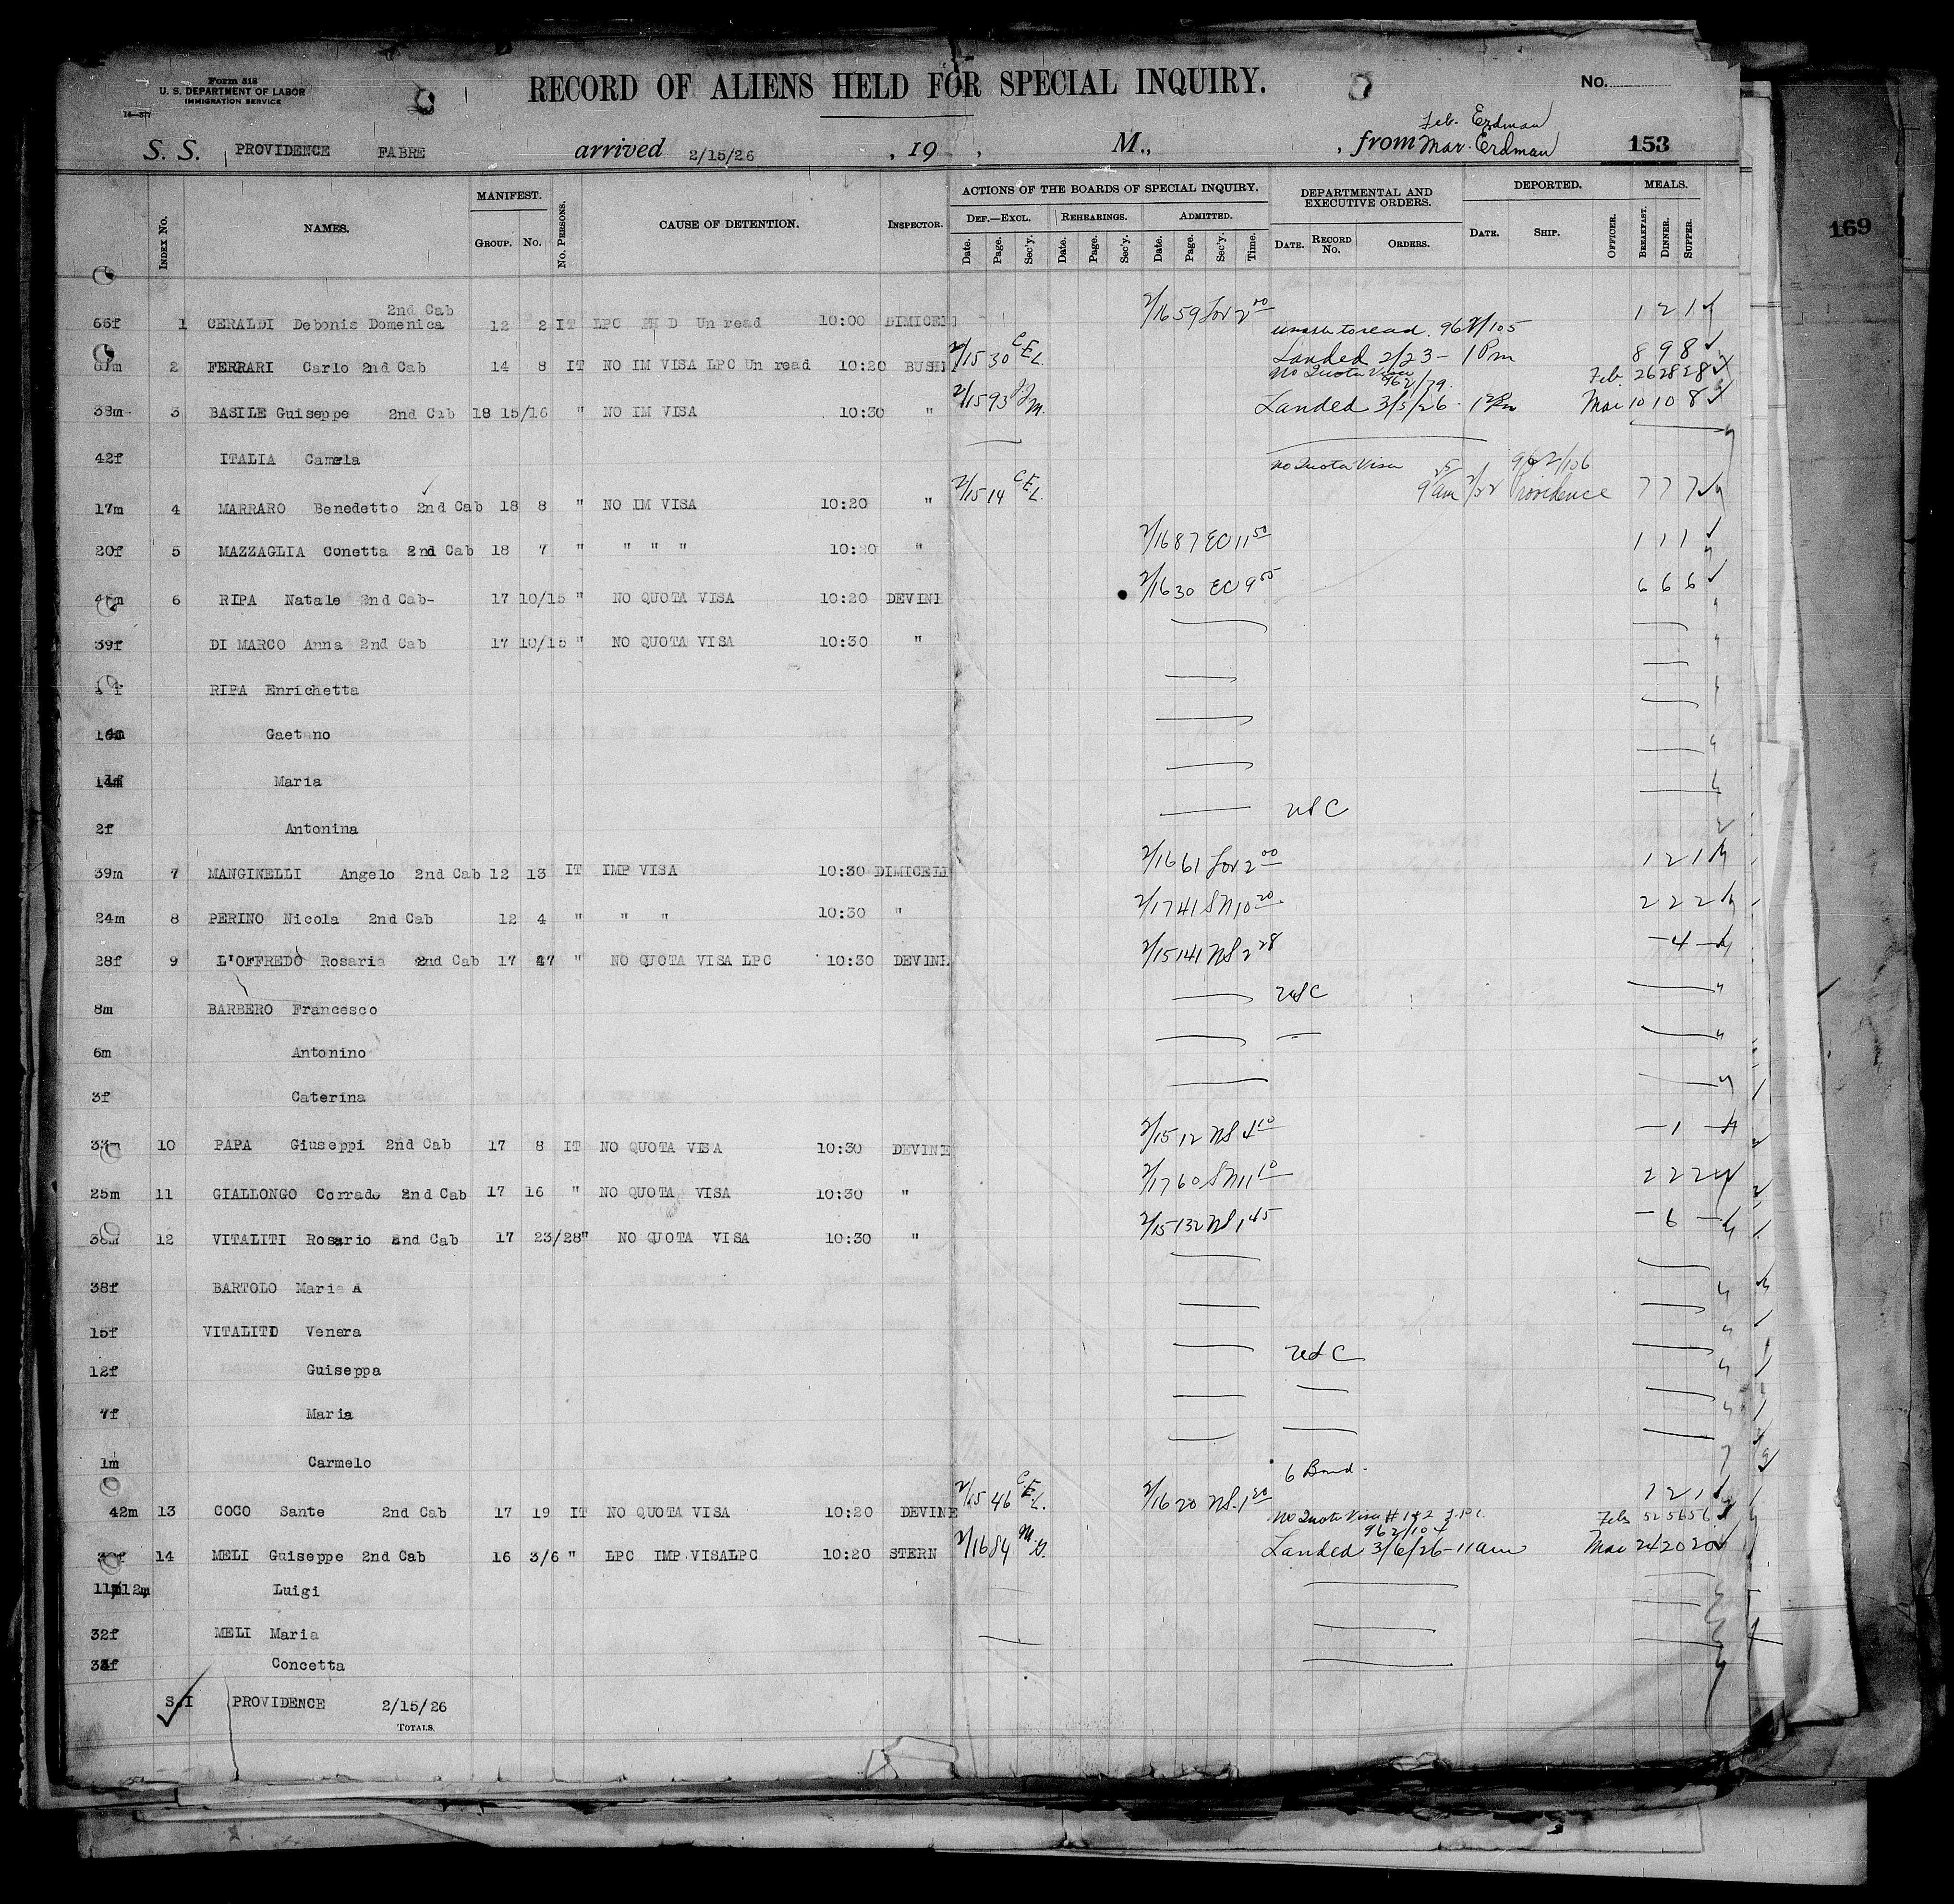 Form 518
U. S. DEPARTMENT OF LABOR
IMMIGRATION SERVICE
16—577
RECORD OF ALIENS HELD FOR SPECIAL INQUIRY.
No.
Feb. Erdman
S. S. PROVIDENCE FABRE arrived 2/15/26 , 19 , M., , from Mar. Erdman 153
169
INDEX No. NAMES. MANIFEST. GROUP. No. No. PERSONS. CAUSE OF DETENTION. INSPECTOR. ACTIONS OF THE BOARDS OF SPECIAL INQUIRY. DEF.—EXCL. Date. Page. Sec'y. REHEARINGS. Date. Page. Sec'y. ADMITTED. Date. Page. Sec'y. Time. DEPARTMENTAL AND EXECUTIVE ORDERS. DATE. RECORD No. ORDERS. DEPORTED. DATE. SHIP. OFFICER. MEALS. BREAKFAST. DINNER. SUPPER.
2nd Cab
66f 1 CERALDI Debonis Domenica 12 2 IT LPC Un read 10:00 DIMICELI 2/16 59 2 00 1 2 1
unable to read 962/105
2 FERRARI Carlo 2nd Cab 14 8 IT NO IM VISA LPC Un read 10:20 BUSH 2/15 30 C.E.L. Landed 2/23 - 1 Pm 8 9 8
No Quota Visa 962/79. Feb. 26 28 28
38m 3 BASILE Guiseppe 2nd Cab 18 15/16 " NO IM VISA 10:30 " 2/15 93 Landed 3/3/26 - Mar 10 10 8
42f ITALIA Camela
No Quota Visa 962/106
17m 4 MARRARO Benedetto 2nd Cab 18 8 " NO IM VISA 10:20 " 2/15 14 C.E.L. 9 am Providence 7 7 7
20f 5 MAZZAGLIA Conetta 2nd Cab 18 7 " " " " 10:20 " 2/16 87 EC 11 50 1 1 1
6 RIPA Natale 2nd Cab- 17 10/15 " NO QUOTA VISA 10:20 DEVINE 2/16 30 EC 9 55 6 6 6
39f DI MARCO Anna 2nd Cab 17 10/15 " NO QUOTA VISA 10:30 "
RIPA Enrichetta
Gaetano
Maria
2f Antonina USC
39m 7 MANGINELLI Angelo 2nd Cab 12 13 IT IMP VISA 10:30 DIMICELI 2/16 61 2 00 1 2 1
24m 8 PERINO Nicola 2nd Cab 12 4 " " " 10:30 " 2/17 41 SN 10 20 2 2 2
28f 9 L'OFFREDO Rosaria 2nd Cab 17 " NO QUOTA VISA LPC 10:30 DEVINE 2/15 141 NS 2 28 - 4 -
8m BARBERO Francesco USC
6m Antonino
3f Caterina
33m 10 PAPA Giuseppi 2nd Cab 17 8 IT NO QUOTA VISA 10:30 DEVINE 2/15 12 NS 4 10 - 1 -
25m 11 GIALLONGO Corrado 2nd Cab 17 16 " NO QUOTA VISA 10:30 " 2/17 60 SN 11 10 2 2 2
12 VITALITI Rosario 2nd Cab 17 23/28 " NO QUOTA VISA 10:30 " 2/15 132 NS 1 45 - 6 -
38f BARTOLO Maria A
15f VITALITI Venera
12f Guiseppa USC
7f Maria
1m Carmelo
6 Bond.
42m 13 COCO Sante 2nd Cab 17 19 IT NO QUOTA VISA 10:20 DEVINE 2/15 46 C.E.L. 2/16 20 NS. 1 30 1 2 1
No Quota Visa 962/104 Feb 52 56 56
14 MELI Guiseppe 2nd Cab 16 3/6 " LPC IMP VISALPC 10:20 STERN 2/16 84 Landed 3/6/26 - 11am Mar 24 20 20
Luigi
32f MELI Maria
Concetta
S.I PROVIDENCE 2/15/26
TOTALS.